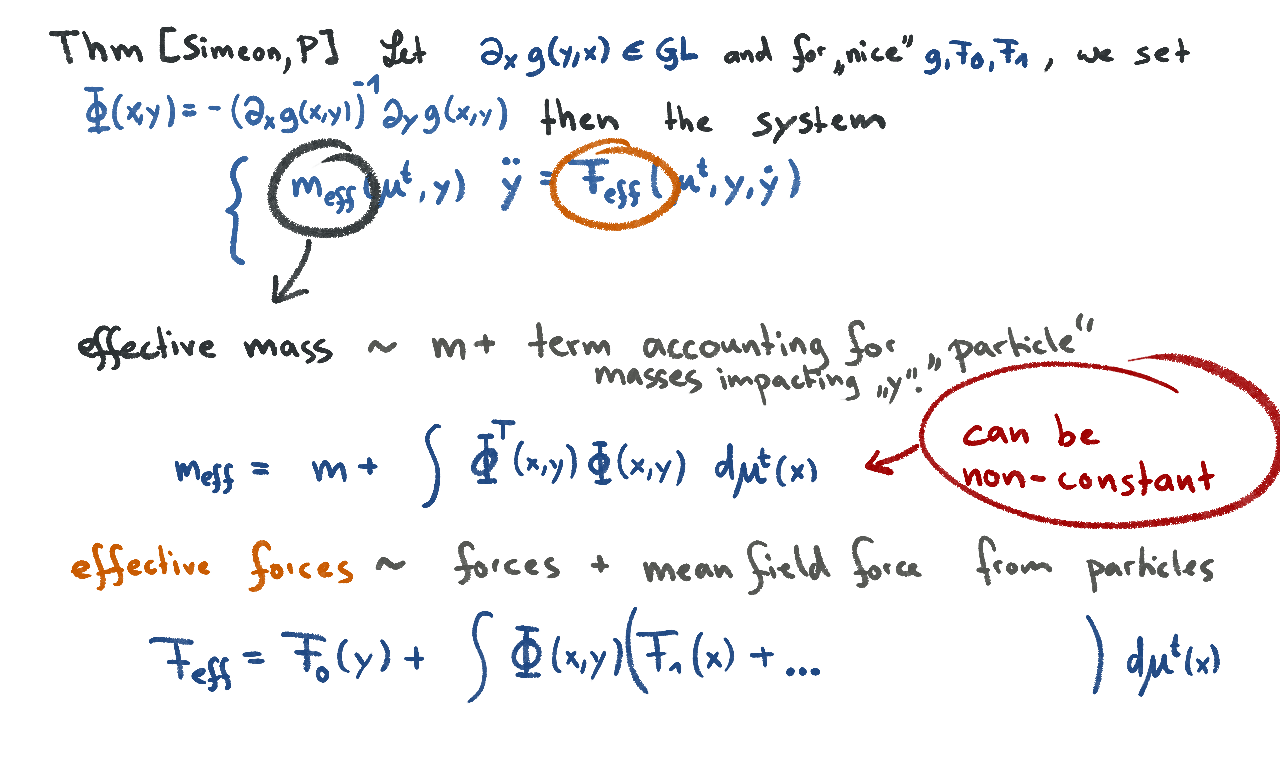 Thm [Simeon, P] Let ∂ₓ g(y,x) ∈ GL and for „nice" g, F₀, F₁, we set
Φ(x,y) = -(∂ₓg(x,y))⁻¹ ∂ᵧ g(x,y) then the system
{ m_eff(μᵗ, y) ÿ = F_eff(μᵗ, y, ẏ)
effective mass ~ m + term accounting for „particle"
masses impacting „y".
can be
m_eff = m + ∫ Φᵀ(x,y) Φ(x,y) dμᵗ(x)
non-constant
effective forces ~ forces + mean field force from particles
F_eff = F₀(y) + ∫ Φ(x,y) (F₁(x) + ... ) dμᵗ(x)